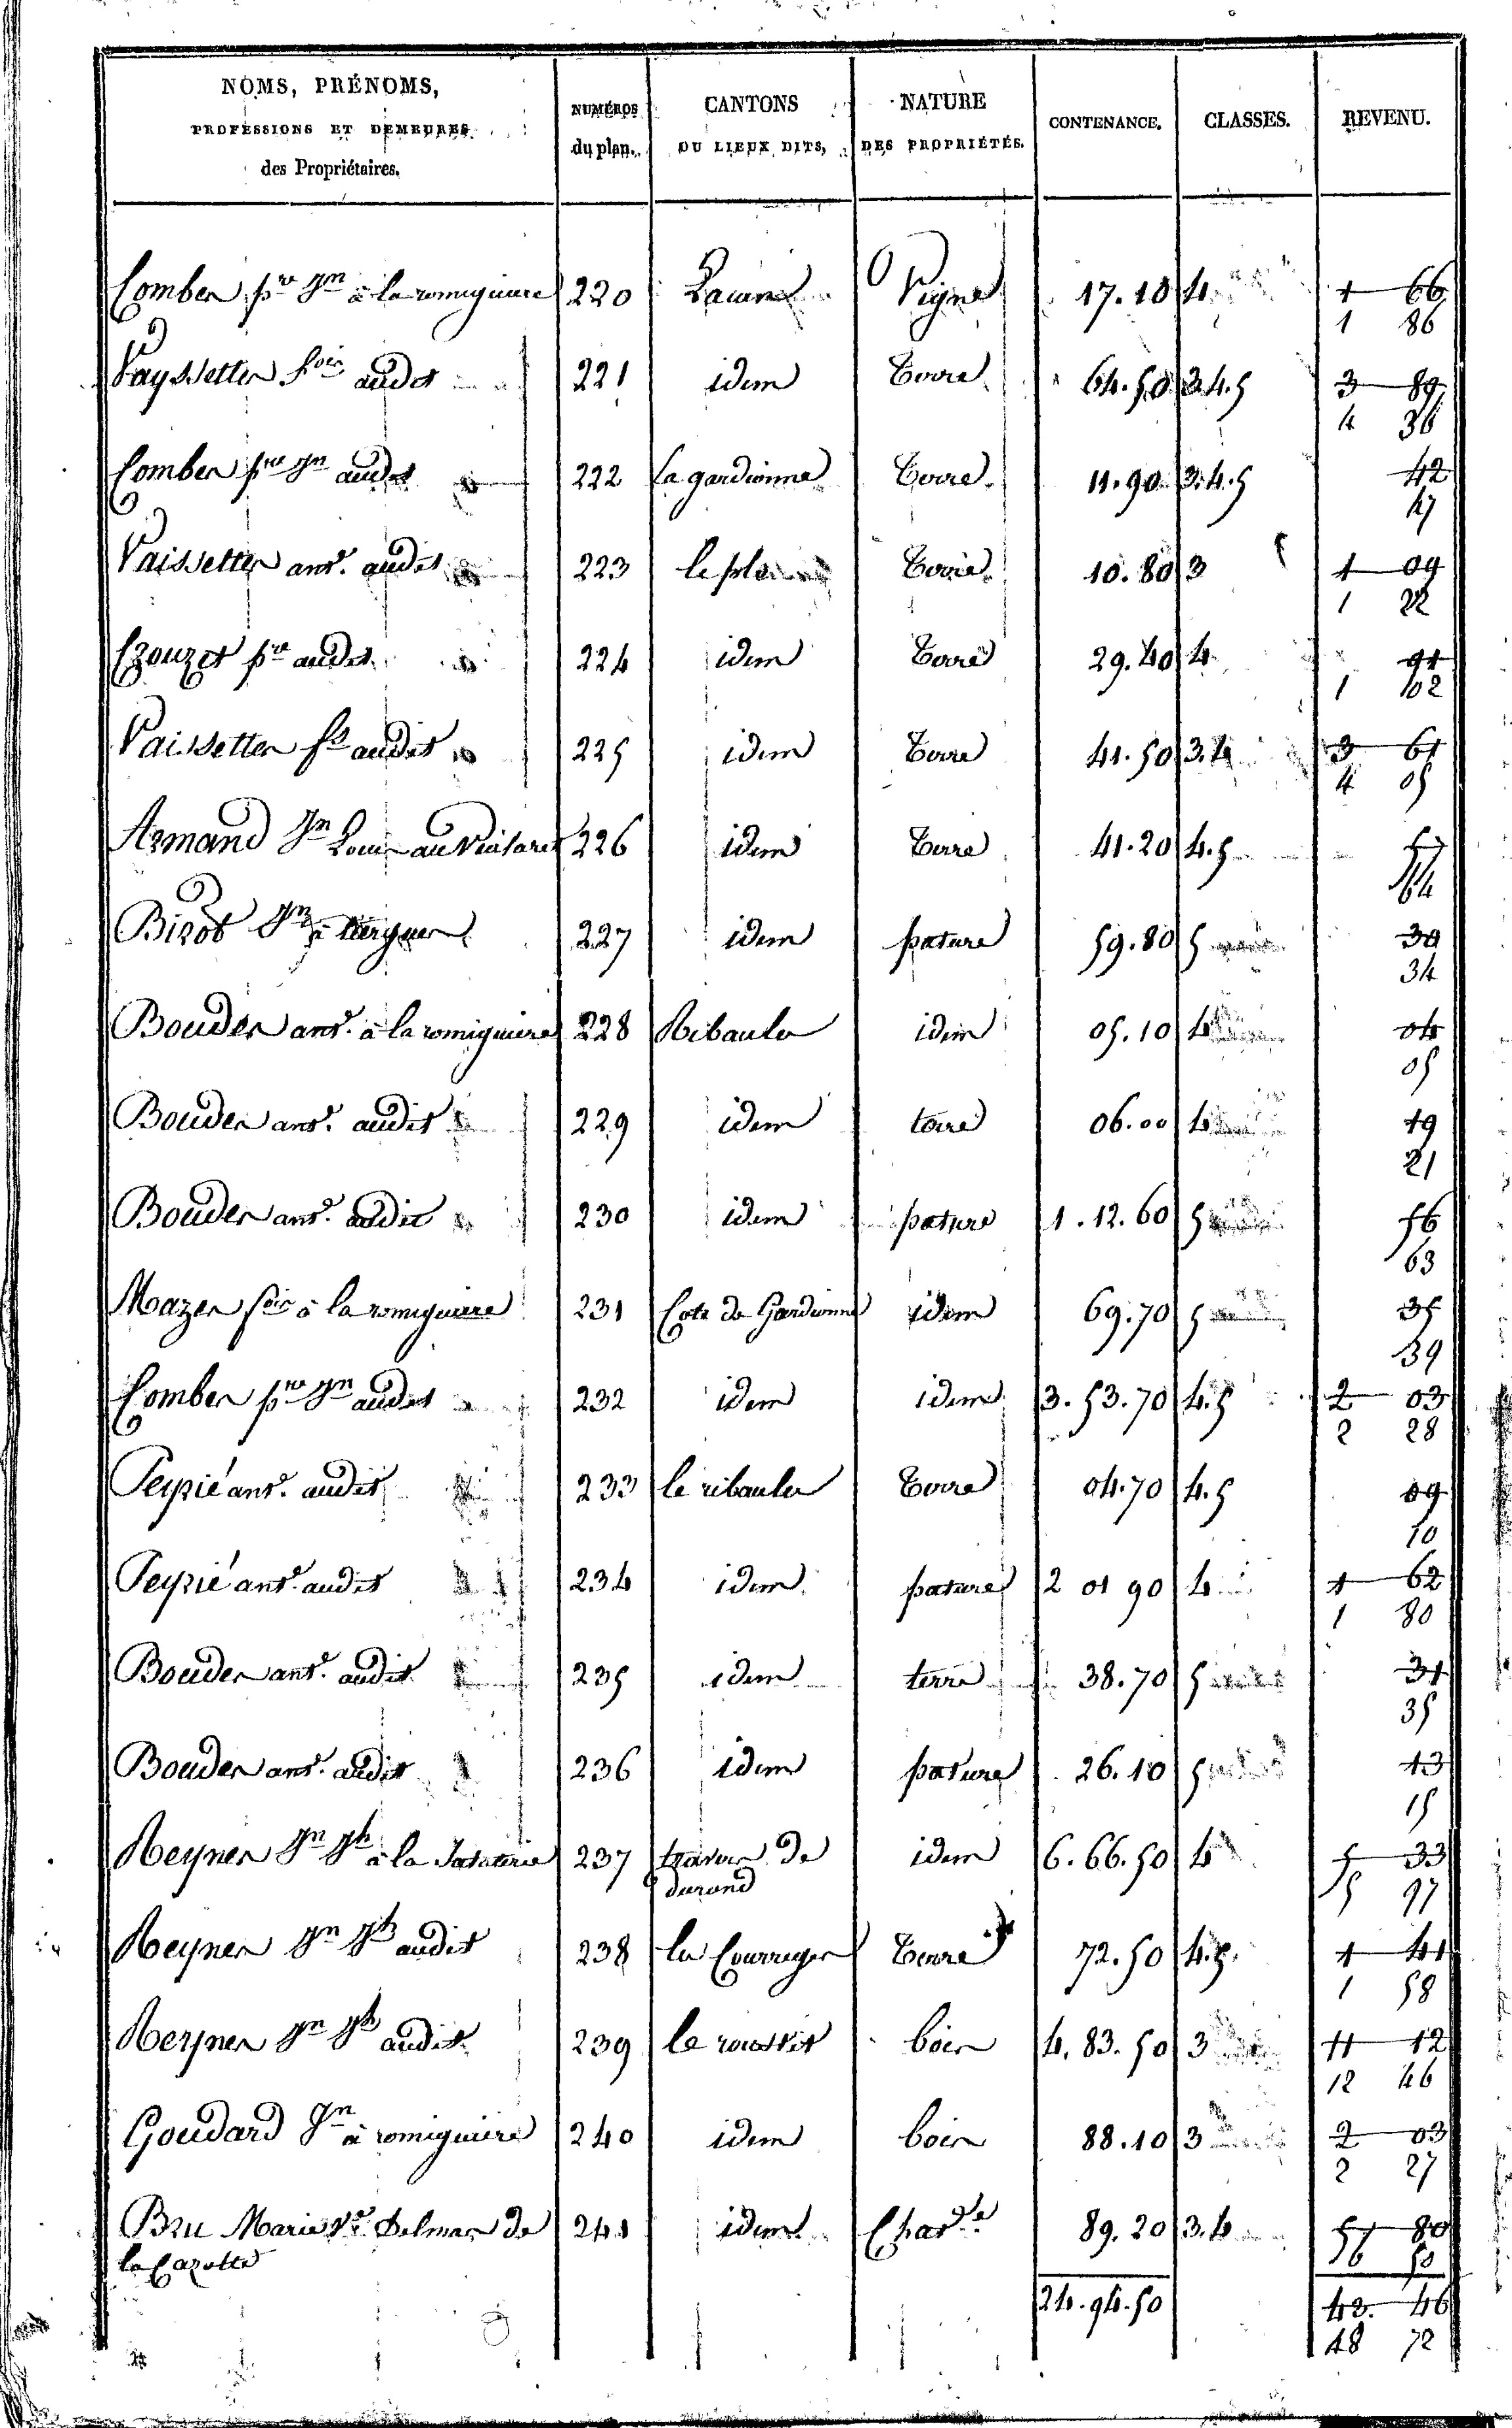 NOMS, PRÉNOMS, PROFESSIONS ET DEMEURES des Propriétaires. NUMÉROS du plan. CANTONS OU LIEUX DITS, NATURE DES PROPRIÉTÉS. CONTENANCE. CLASSES. REVENU.
Combes pre Jn à la romiguiere 220 Vigne 17.10 4 1 66
1 86
Vayssettes audit 221 idem Terre 64.50 3.4.5 3 89
4 36
Combes pre Jn audit 222 la gardionne Terre 11.90 3.4.5 42
47
Vaissettes ant. audit 223 Terre 10.80 3 1 09
1 22
Crouzet pre audit 224 idem Terre 29.40 4 91
1 02
Vaissettes fs audit 225 idem Terre 41.50 3.4 3 61
4 05
Armand Jn Louis au Vialaret 226 idem Terre 41.20 4.5 57
64
Bizot Jn 227 idem pature 59.80 5 30
34
Boudes ant. à la romiguiere 228 Ribaules idem 05.10 4 04
05
Boudes ant. audit 229 idem terre 06.00 4 19
21
Boudes ant. audit 230 idem pature 1.12.60 5 56
63
Mazer à la romiguiere 231 Cote de Gardionne idem 69.70 5 35
39
Combes pre Jn audit 232 idem idem 3.53.70 4.5 2 03
2 28
Peyrié ant. audit 233 le ribaules Terre 04.70 4.5 09
10
Peyrié ant. audit 234 idem pature 2 01 90 4 1 62
1 80
Boudes ant. audit 235 idem terre 38.70 5 31
35
Boudes ant. audit 236 idem pature 26.10 5 13
15
Reynes Jn Jh à la 237 travers de idem 6.66.50 4 5 33
durand 5 97
Reynes Jn Jh audit 238 Terre 72.50 4.5. 1 41
1 58
Reynes Jn Jh audit 239 bois 4.83.50 3 11 12
12 46
Goudard Jn à romiguiere 240 idem bois 88.10 3 2 03
2 27
Bru Marie Ve Delmas de 241 idem 89.20 3.4 5 80
la Cazotte 6 50
24.94.50 43. 46
48 72